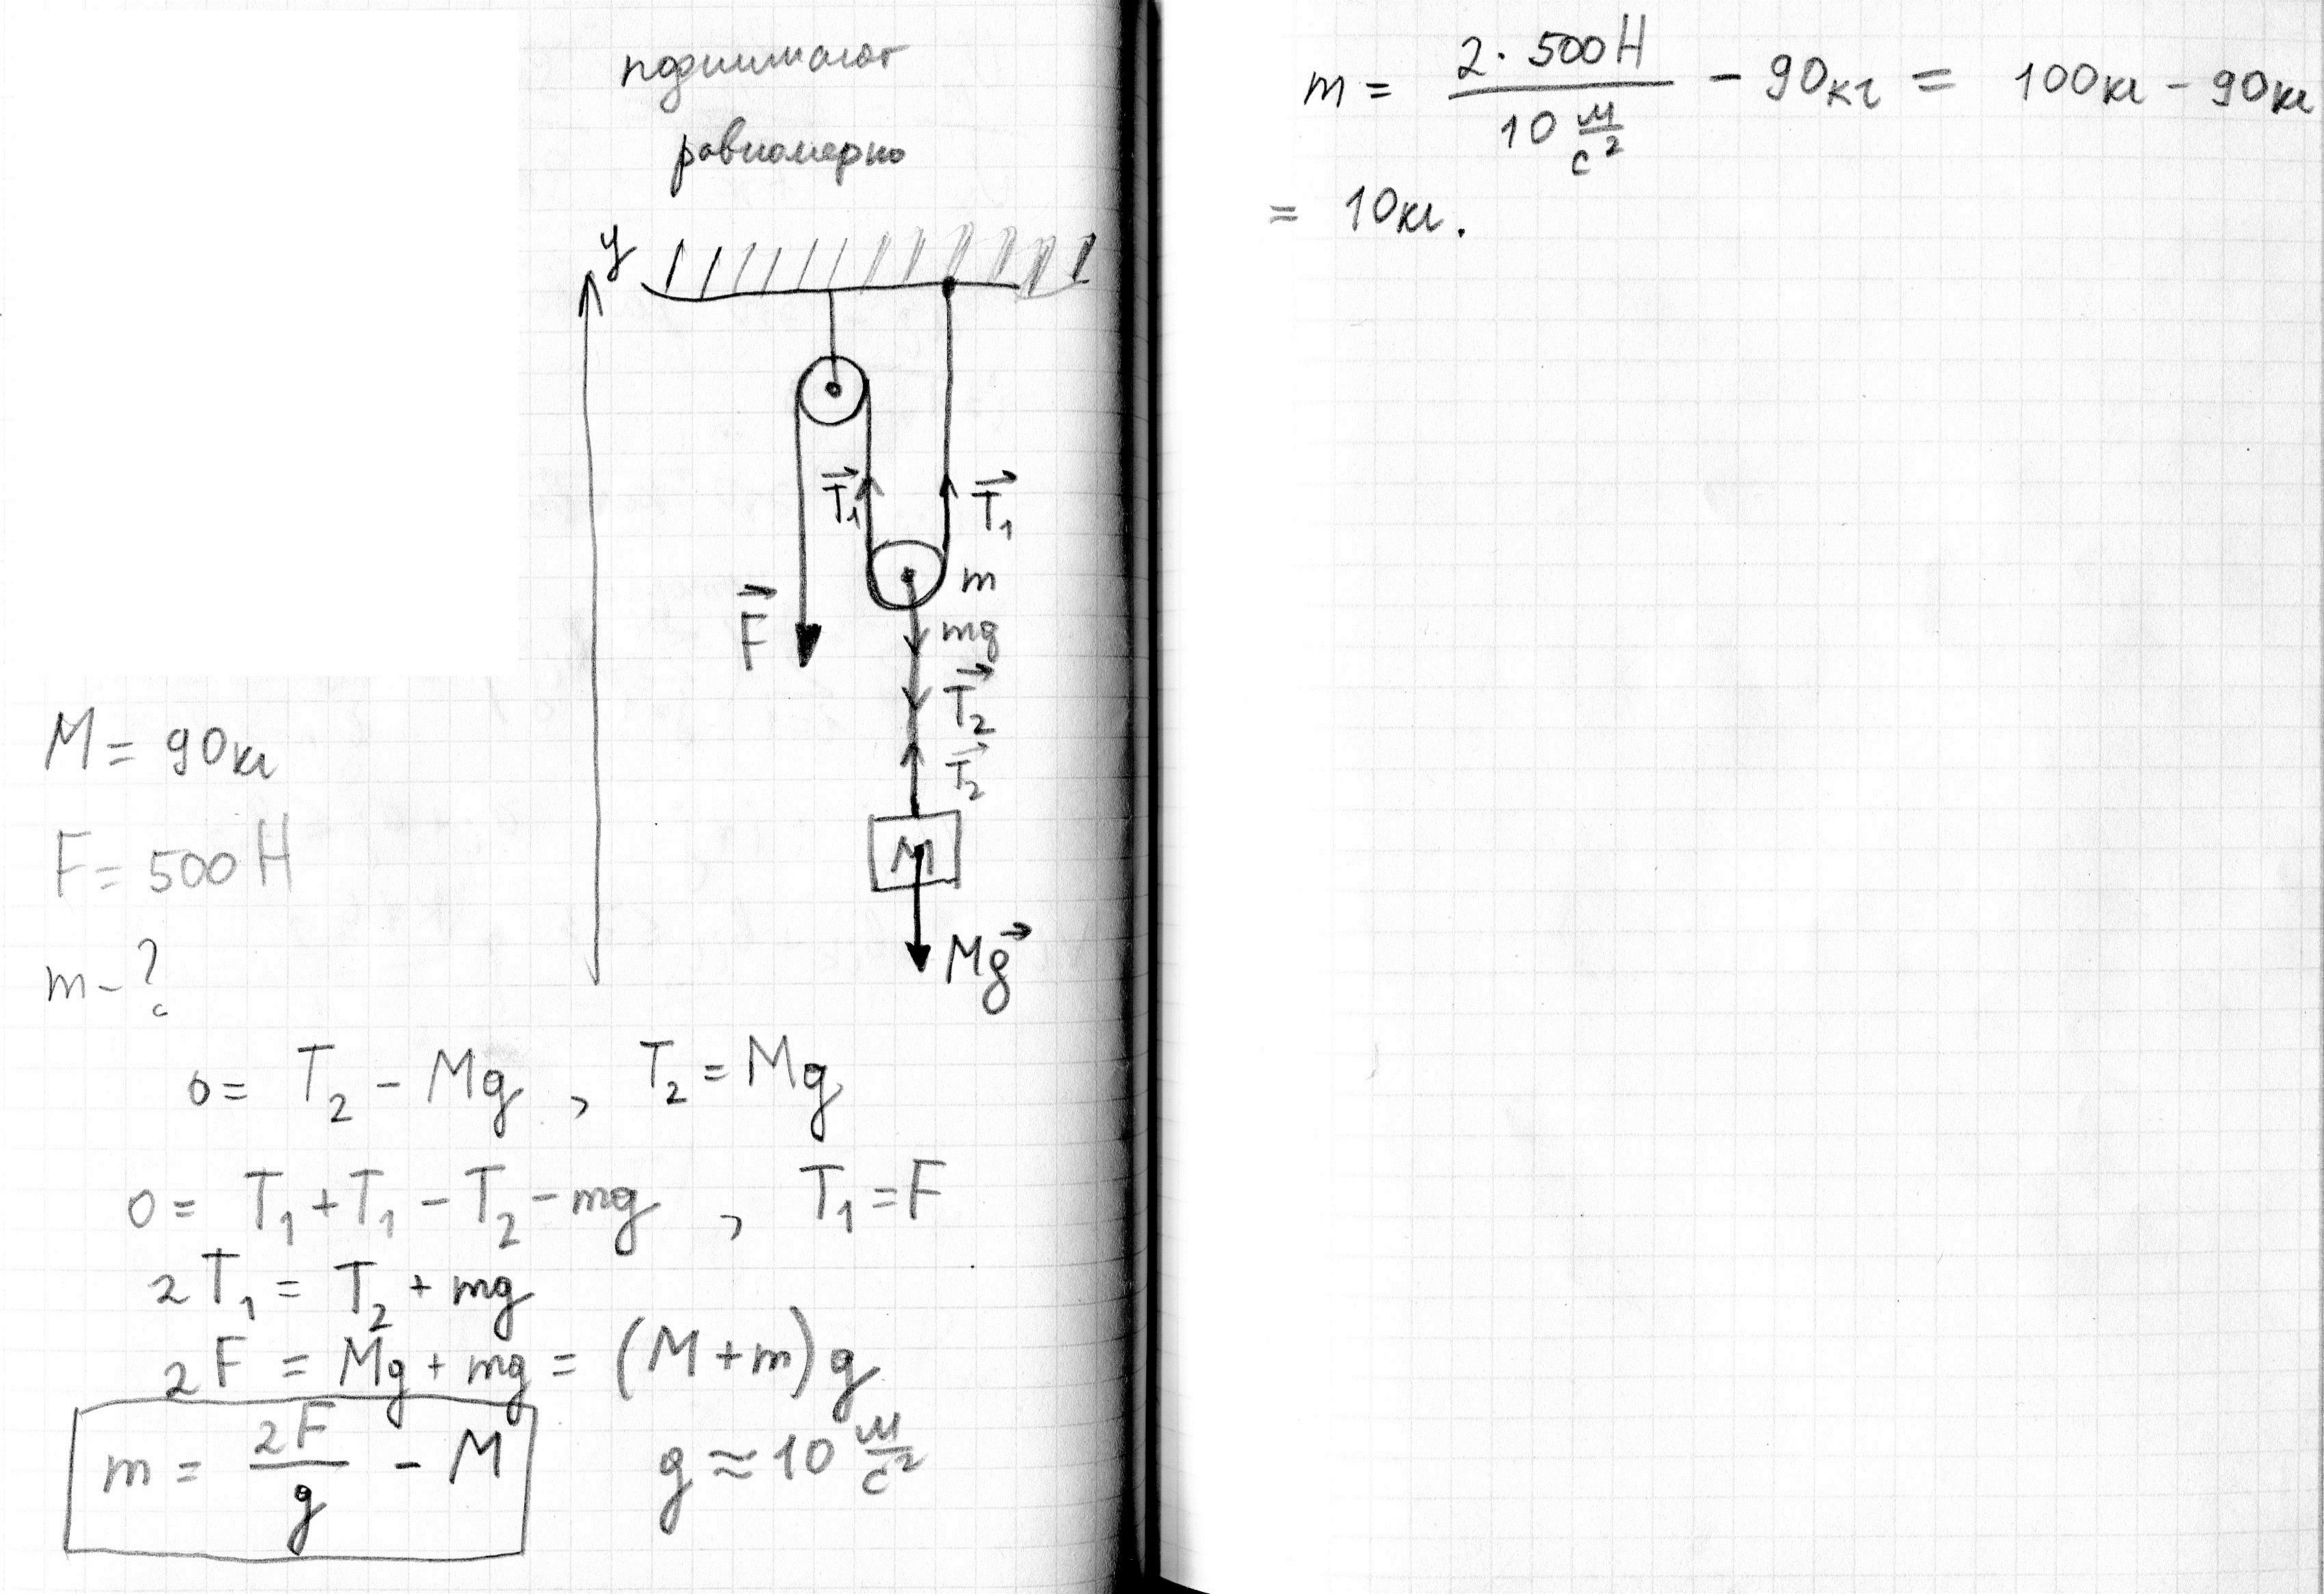 поднимают
равномерно
y
T₁ T₁
m
F
mg
T₂
T₂
M
Mg
M = 90кг
F = 500 Н
m - ?
0 = T₂ - Mg , T₂ = Mg
0 = T₁ + T₁ - T₂ - mg , T₁ = F
2T₁ = T₂ + mg
2F = Mg + mg = (M + m)g
m = 2F/g - M g ≈ 10 м/с²
m = 2·500Н / 10 м/с² - 90кг = 100кг - 90кг
= 10кг.